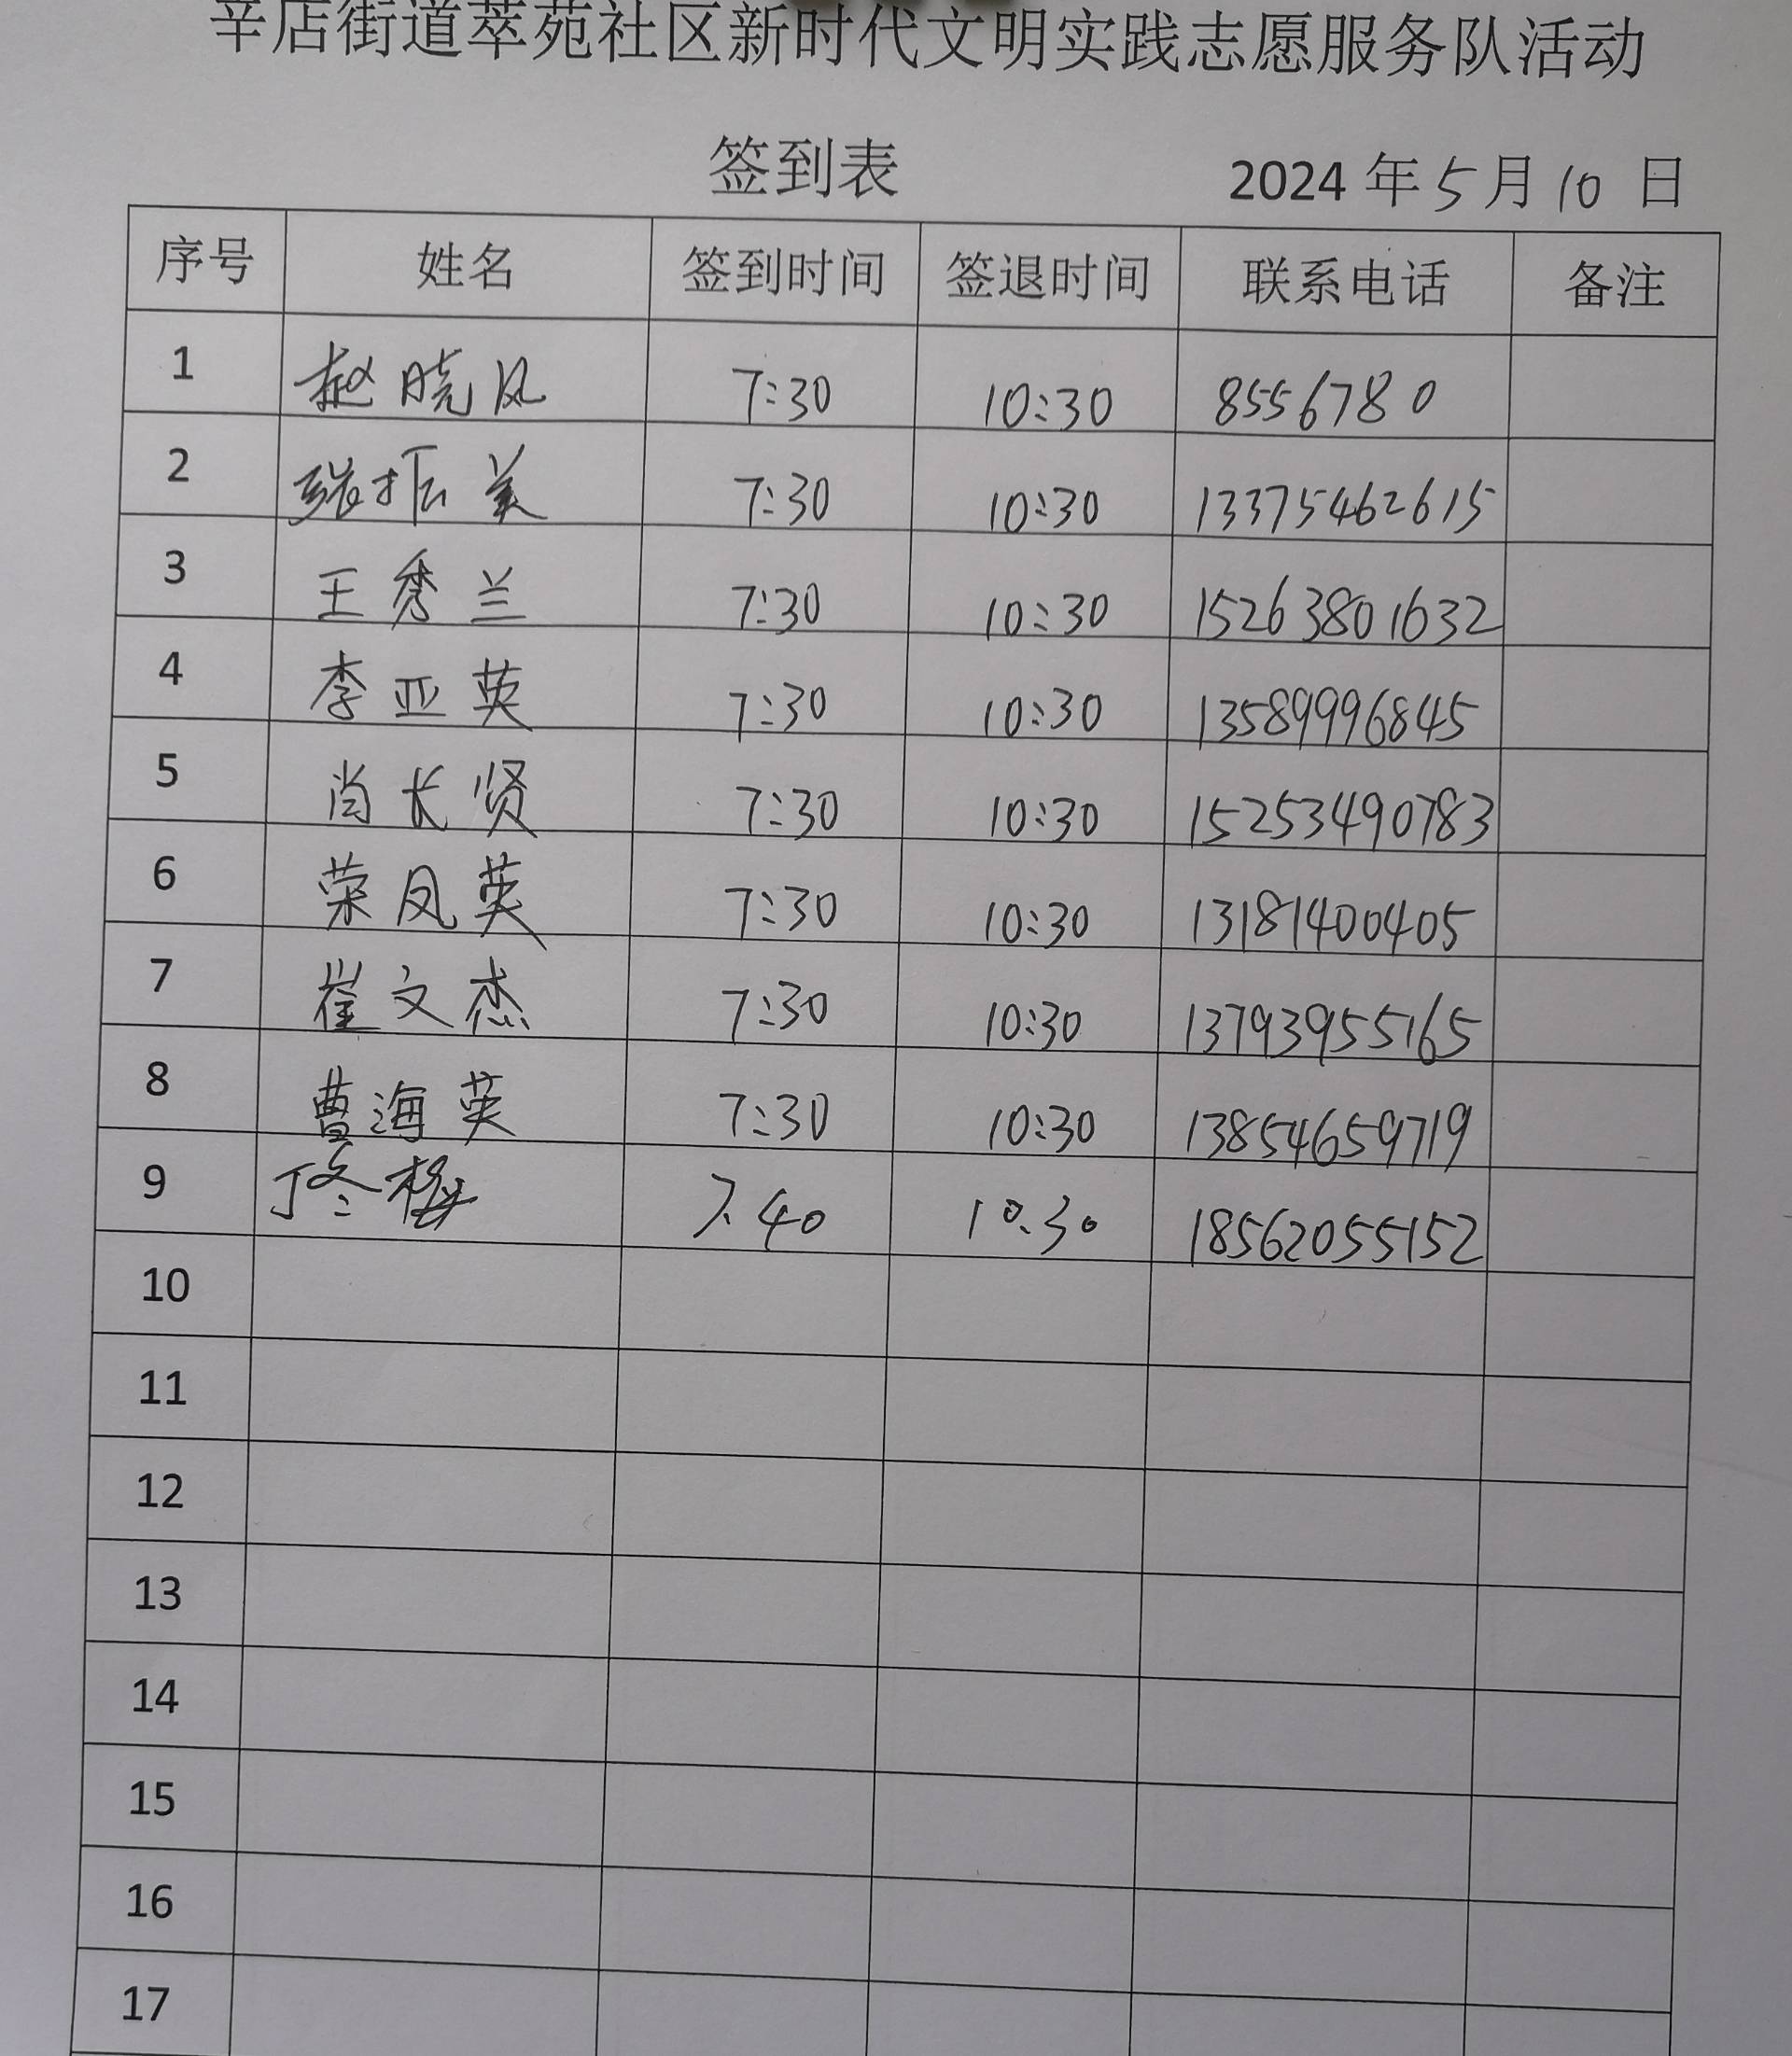 辛店街道萃苑社区新时代文明实践志愿服务队活动
签到表 2024年5月10日
序号 姓名 签到时间 签退时间 联系电话 备注
1 赵晓凤 7:30 10:30 8556780
2 张振美 7:30 10:30 13375462615
3 王秀兰 7:30 10:30 15263801632
4 李亚英 7:30 10:30 13589996845
5 肖长贤 7:30 10:30 15253490783
6 荣凤英 7:30 10:30 13181400405
7 崔文杰 7:30 10:30 13793955165
8 曹海英 7:30 10:30 13854659719
9 丁冬梅 7.40 10.30 18562055152
10
11
12
13
14
15
16
17